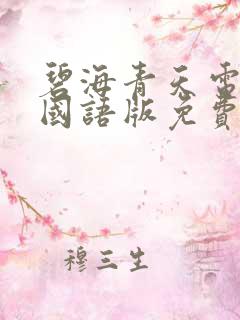 碧海青天電
國語版免費
穆三生